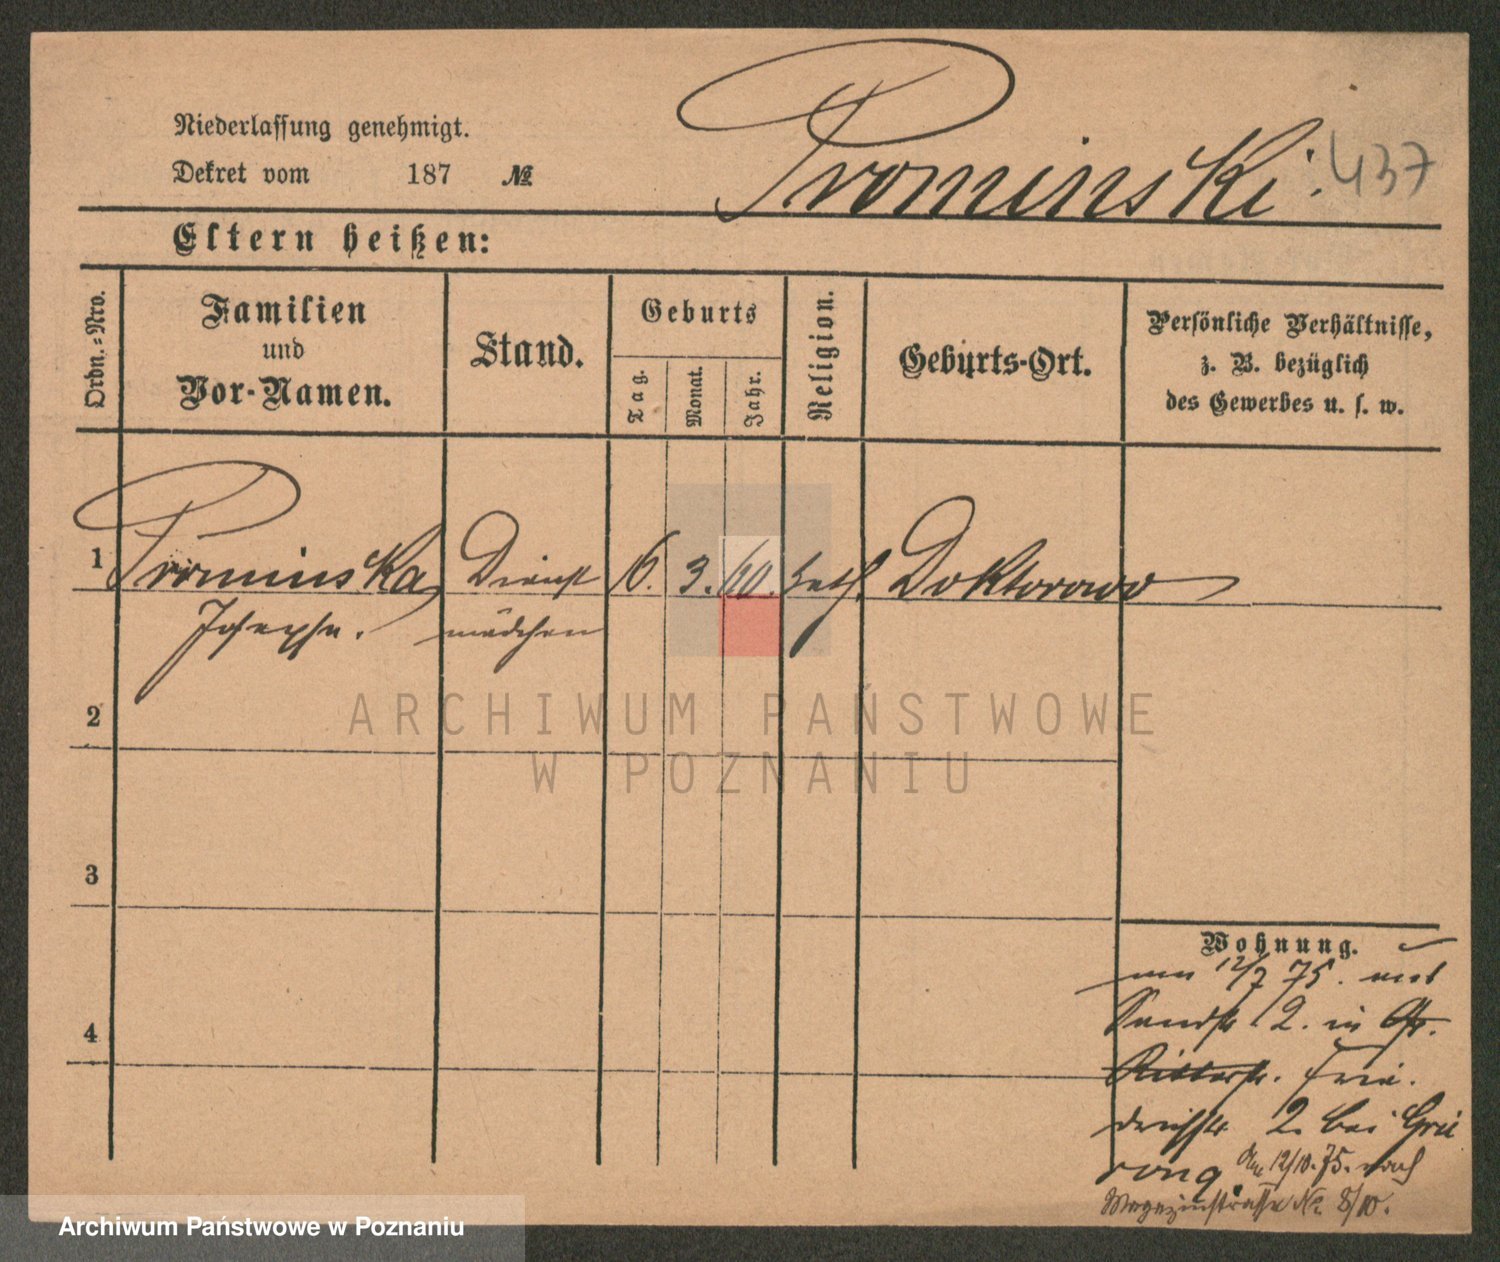 Niederlassung genehmigt.
Dekret vom 187 №
Prominski. 437
Eltern heißen:
Ordn.-Nro.
Familien
und
Vor-Namen.
Stand.
Geburts
Tag.
Monat.
Jahr.
Religion.
Geburts-Ort.
Persönliche Verhältnisse,
z. B. bezüglich
des Gewerbes u. s. w.
1 Prominska Dienst 6. 3. 60. kath. Doktorowo
Josepha. mädchen
2
3
4
Wohnung.
12/7 75.
Sandstr. 2. in Gr.
Ritterstr. Frie.
drichstr. 2. bei
Am 12/10. 75. nach
Magazinstrasse No. 8/10.
ARCHIWUM PAŃSTWOWE
W POZNANIU
Archiwum Państwowe w Poznaniu